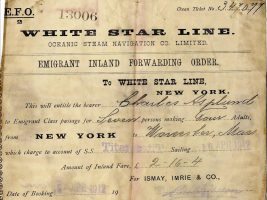 E.F.O.
13006
Ocean Ticket No. 347077
WHITE STAR LINE.
OCEANIC STEAM NAVIGATION CO. LIMITED.
EMIGRANT INLAND FORWARDING ORDER.
To WHITE STAR LINE,
NEW YORK.
This will entitle the bearer Charles Asplund
to Emigrant Class passage for Seven persons making four adults,
from NEW YORK to Worcester, Mass
which charge to account of S.S. Titanic Sailing
Amount of Inland Fare, £ 2-16-4
For ISMAY, IMRIE & CO.,
Date of Booking 1912 19